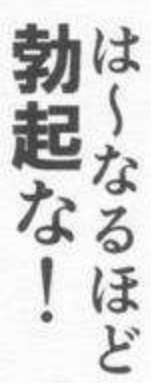 は～なるほど
勃起な！